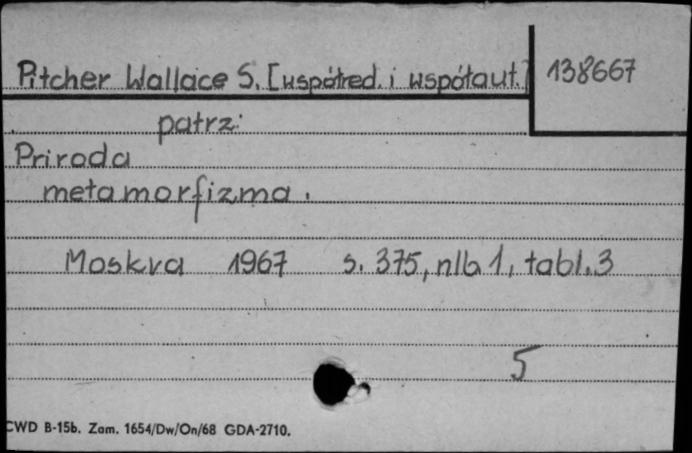 Pitcher Wallace S. [współred. i współaut.] 138667
patrz:
Priroda
metamorfizma.
Moskva 1967 s. 375, nlb 1, tabl. 3
5
CWD B-15b. Zam. 1654/Dw/On/68 GDA-2710.